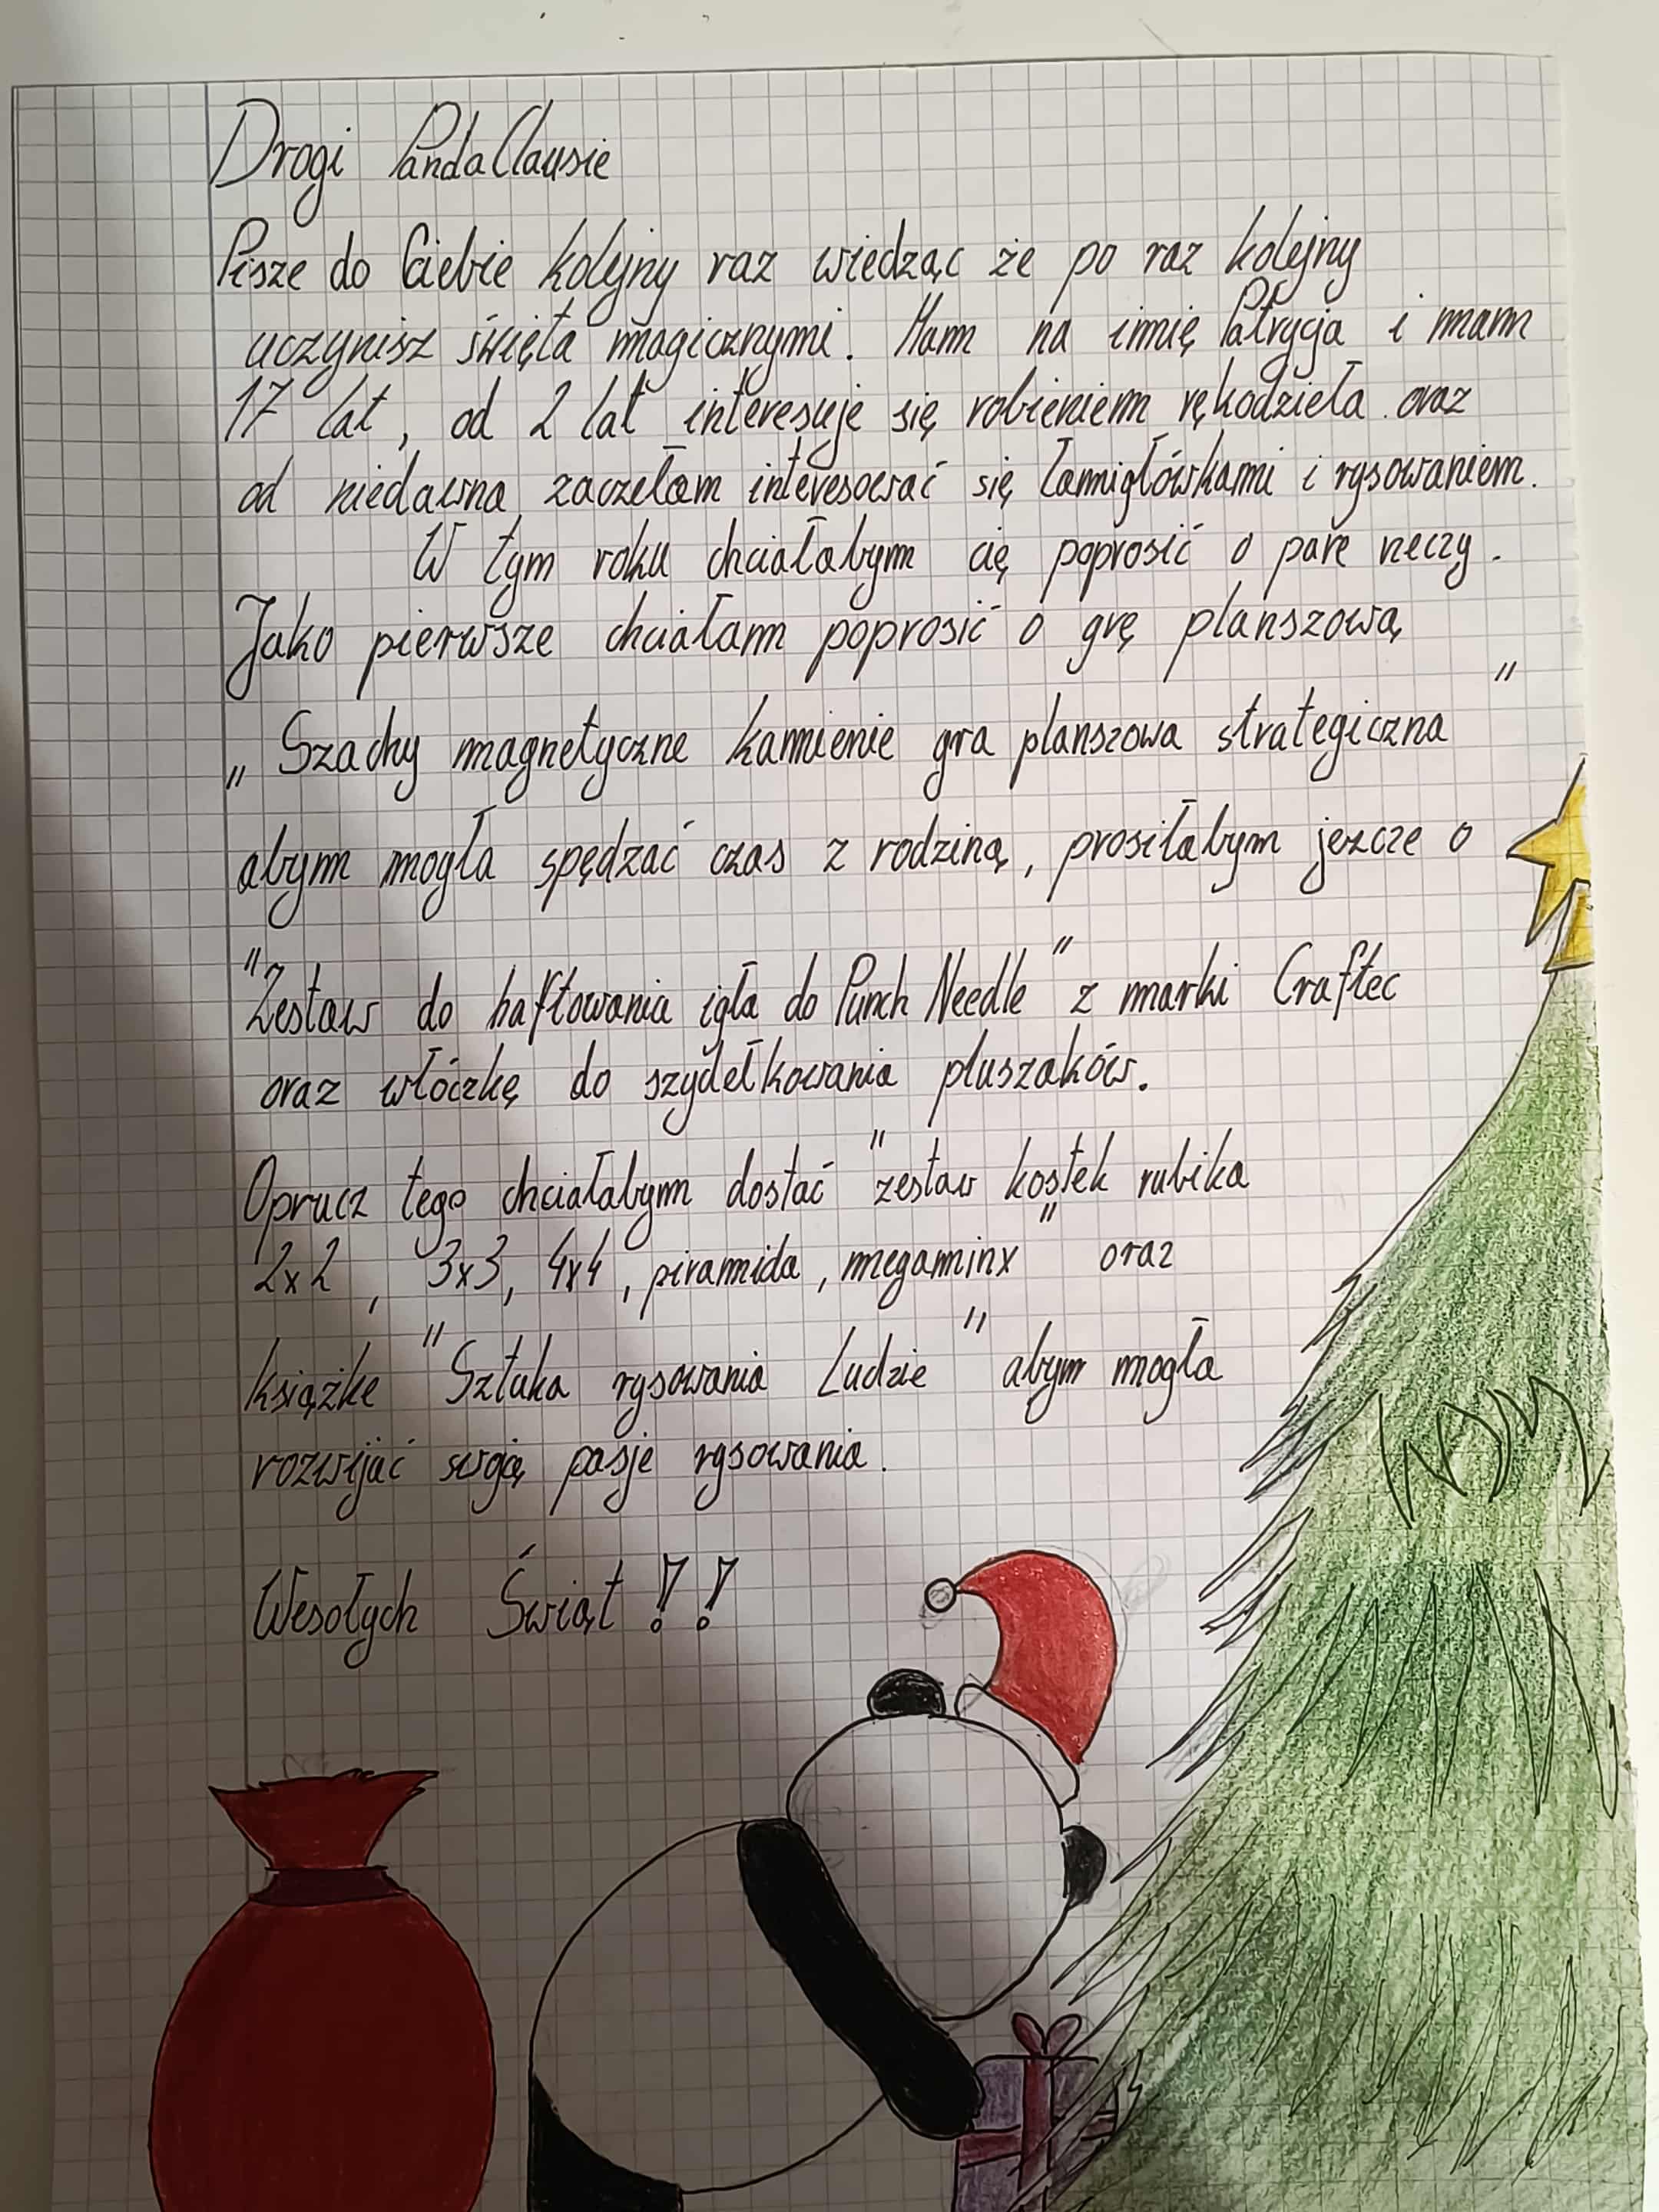 Drogi PandaClausie
Pisze do Ciebie kolejny raz wiedząc że po raz kolejny
uczynisz święta magicznymi. Mam na imię Patrycja i mam
17 lat, od 2 lat interesuje się robieniem rękodzieła oraz
od niedawna zaczełam interesować się łamigłówkami i rysowaniem.
W tym roku chciałabym cię poprosić o pare rzeczy.
Jako pierwsze chciałam poprosić o grę planszową
„Szachy magnetyczne kamienie gra planszowa strategiczna"
abym mogła spędzać czas z rodziną, prosiłabym jezcze o
"Zestaw do haftowania igła do Punch Needle" z marki Craftec
oraz włóczkę do szydełkowania pluszaków.
Oprucz tego chciałabym dostać "zestaw kostek rubika
2x2, 3x3, 4x4, piramida, megaminx" oraz
książke "Sztuka rysowania Ludzie" abym mogła
rozwijać swoją pasje rysowania.
Wesołych Świąt!!